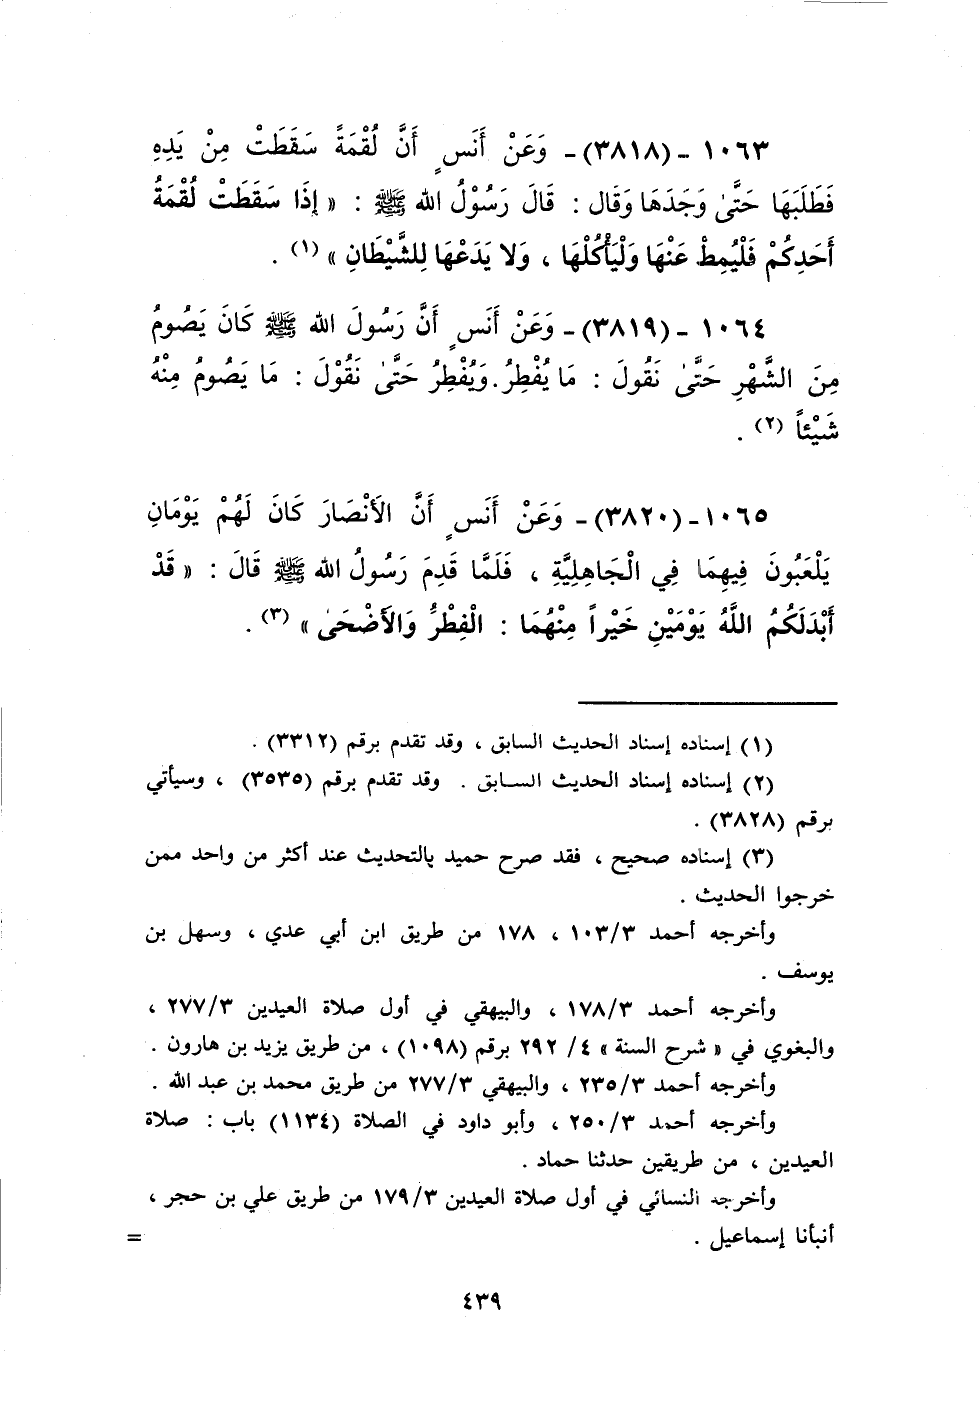 ١٠٦٣ - (٣٨١٨) - وَعَنْ أَنَسٍ أَنَّ لُقْمَةً سَقَطَتْ مِنْ يَدِهِ
فَطَلَبَهَا حَتَّىٰ وَجَدَهَا وَقَال : قَالَ رَسُوْلُ الله ﷺ : « إِذَا سَقَطَتْ لُقْمَةُ
أَحَدِكُمْ فَلْيُمِطْ عَنْهَا وَلْيَأْكُلْهَا ، وَلا يَدَعْهَا لِلشَّيْطَانِ » (١) .
١٠٦٤ - (٣٨١٩) - وَعَنْ أَنَسٍ أَنَّ رَسُولَ الله ﷺ كَانَ يَصُومُ
مِنَ الشَّهْرِ حَتَّىٰ نَقُولَ : مَا يُفْطِرُ. وَيُفْطِرُ حَتَّىٰ نَقُوْلَ : مَا يَصُومُ مِنْهُ
شَيْئاً (٢) .
١٠٦٥ - (٣٨٢٠) - وَعَنْ أَنَسٍ أَنَّ الأَنْصَارَ كَانَ لَهُمْ يَوْمَانِ
يَلْعَبُونَ فِيهِمَا فِي الْجَاهِلِيَّةِ ، فَلَمَّا قَدِمَ رَسُولُ الله ﷺ قَالَ : « قَدْ
أَبْدَلَكُمُ اللَّهُ يَوْمَيْنِ خَيْراً مِنْهُمَا : الْفِطْرُ وَالأَضْحَىٰ » (٣) .
(١) إسناده إسناد الحديث السابق ، وقد تقدم برقم (٣٣١٢) .
(٢) إسناده إسناد الحديث السابق . وقد تقدم برقم (٣٥٣٥) ، وسيأتي
برقم (٣٨٢٨) .
(٣) إسناده صحيح ، فقد صرح حميد بالتحديث عند أكثر من واحد ممن
خرجوا الحديث .
وأخرجه أحمد ١٠٣/٣ ، ١٧٨ من طريق ابن أبي عدي ، وسهل بن
يوسف .
وأخرجه أحمد ١٧٨/٣ ، والبيهقي في أول صلاة العيدين ٢٧٧/٣ ،
والبغوي في « شرح السنة » ٤/ ٢٩٢ برقم (١٠٩٨) ، من طريق يزيد بن هارون .
وأخرجه أحمد ٢٣٥/٣ ، والبيهقي ٢٧٧/٣ من طريق محمد بن عبد الله .
وأخرجه أحمد ٢٥٠/٣ ، وأبو داود في الصلاة (١١٣٤) باب : صلاة
العيدين ، من طريقين حدثنا حماد .
وأخرجه النسائي في أول صلاة العيدين ١٧٩/٣ من طريق علي بن حجر ،
أنبأنا إسماعيل . =
٤٣٩